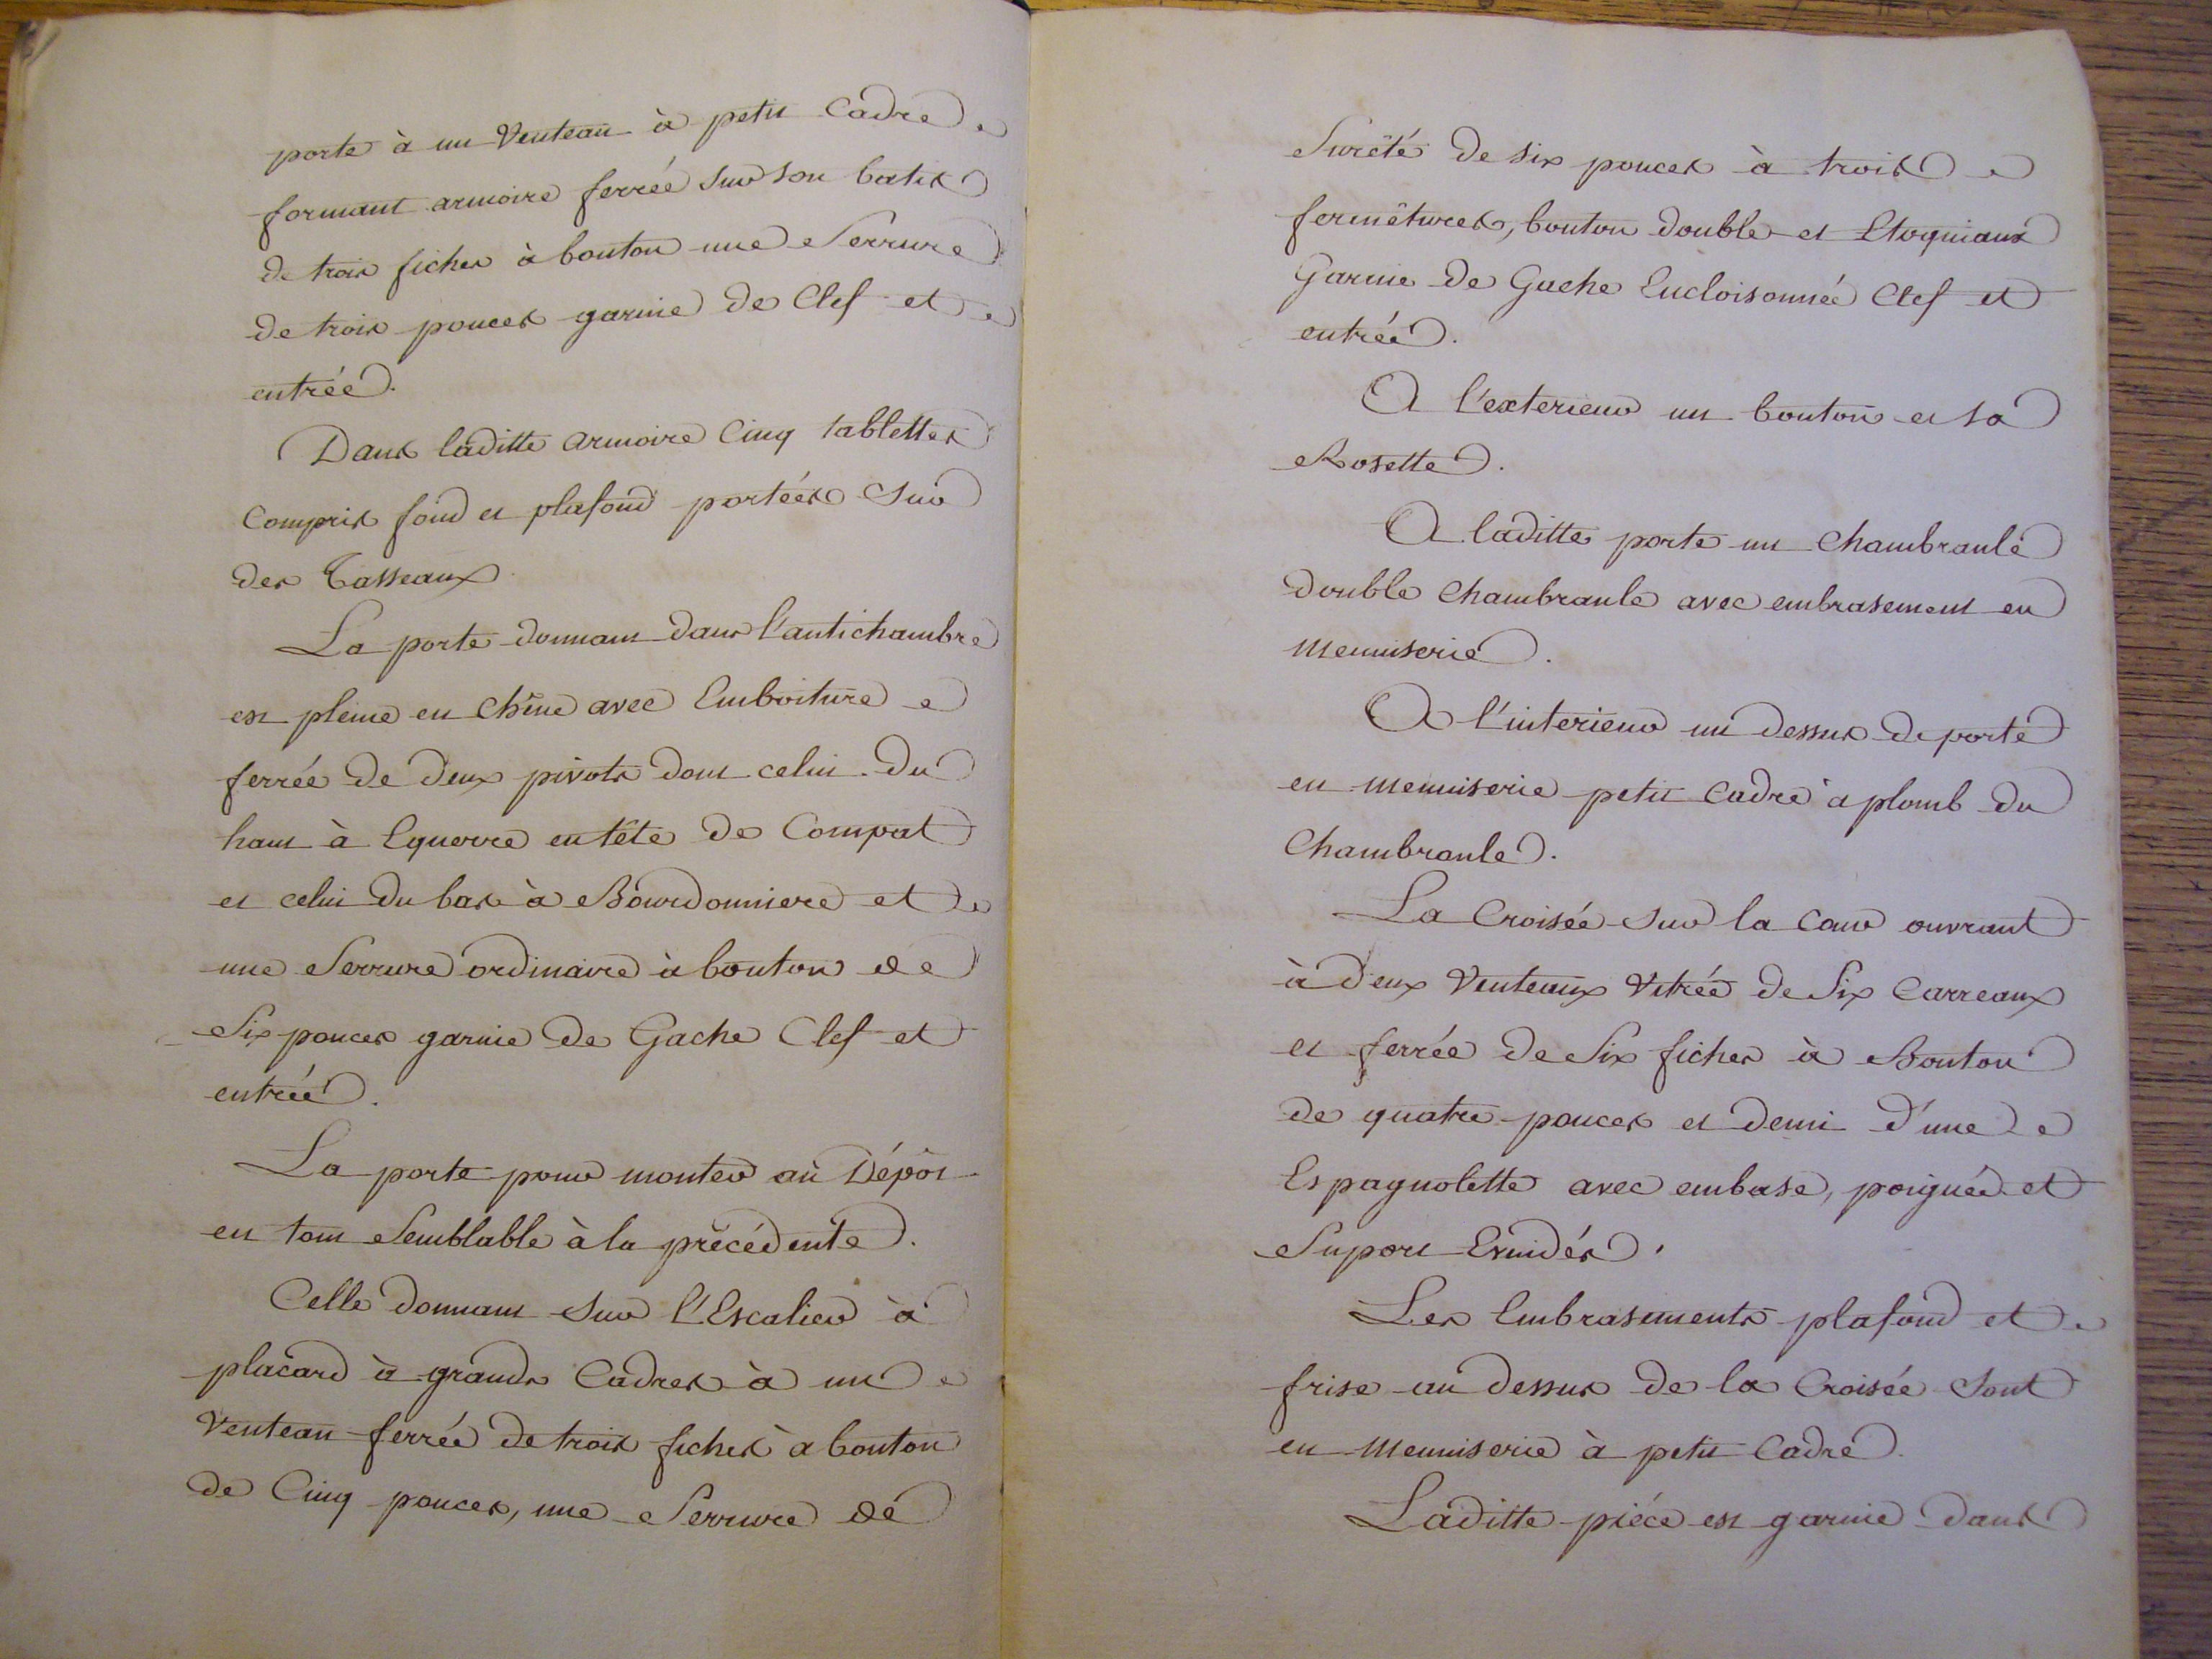 porte à un Venteau à petit Cadre
formant armoire ferrée sur son batis
de trois fiches à bouton une Serrure
de trois pouces garnie de Clef et
entrée.
Dans laditte armoire Cinq tablettes
Compris fond et plafond portées Sur
des Tasseaux
La porte donnant dans l'antichambre
est pleine en Chêne avec Emboiture
ferrée de deux pivots dont celui du
haut à Equerre en tête de Compat
et celui du bas à Bourdonniere et
une Serrure ordinaire à bouton de
Six pouces garnie de Gache Clef et
entrée.
La porte pour monter au Dépôt
en tout Semblable à la précédente.
Celle donnant sur l'Escalier à
placard à grands Cadres à un
Venteau ferrée de trois fiches à bouton
de Cinq pouces, une Serrure de
Sureté de six pouces à trois
fermêtures, bouton double et Etoquiaux
Garnie de Gache Encloisonnée Clef et
entrée.
A l'exterieur un bouton et sa
Rosette.
A laditte porte un Chambranle
double Chambranle avec embrasement en
Menuiserie.
A l'interieur un dessus de porte
en Menuiserie petit Cadre à plomb du
Chambranle.
La Croisée sur la Cour ouvrant
à deux Venteaux Vitrée de Six Carreaux
et ferrée de Six fiches à Bouton
de quatre pouces et demi d'une
Espagnolette avec embase, poignée et
Suport Evuidés.
Les Embrasements plafond et
frise au dessus de la Croisée Sont
en Menuiserie à petit Cadre.
Laditte piéce est garnie dans